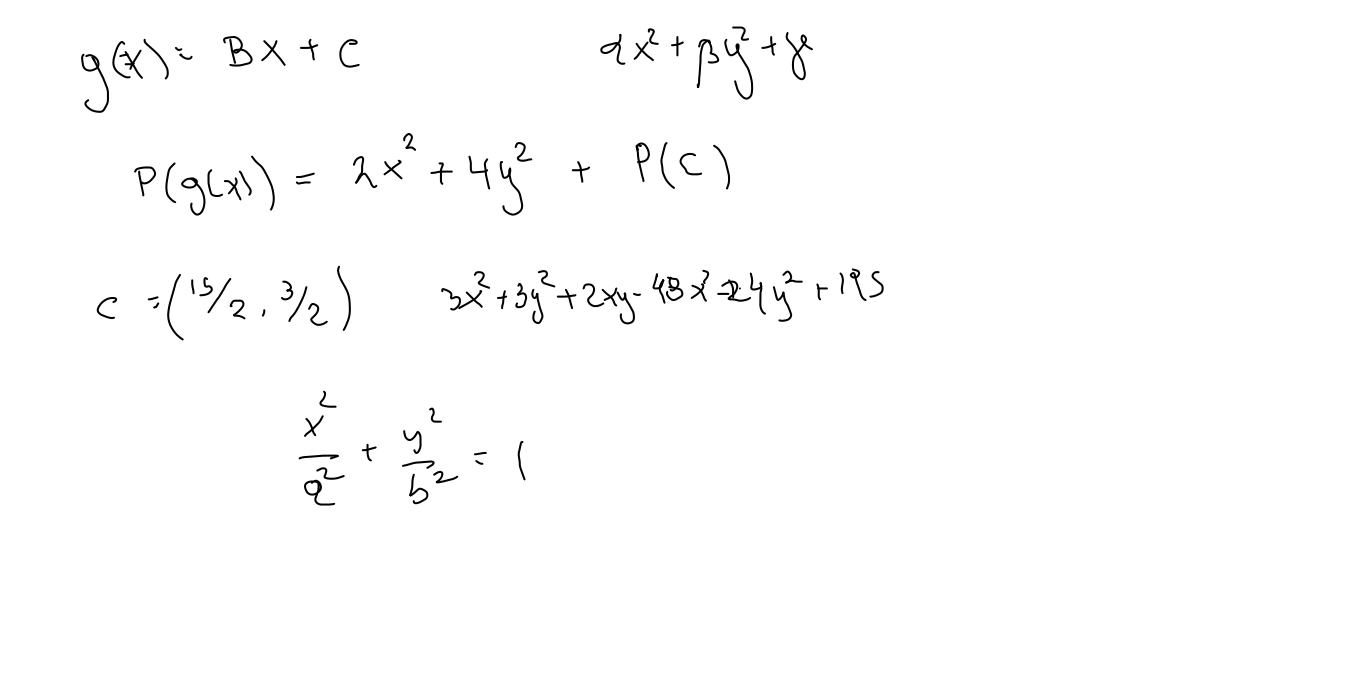 g(x) = Bx + c αx² + βy² + γ
P(g(x)) = 2x² + 4y² + P(c)
c = (15/2, 3/2) 3x² + 3y² + 2xy - 48x² - 24y² + 195
x²/a² + y²/b² = 1